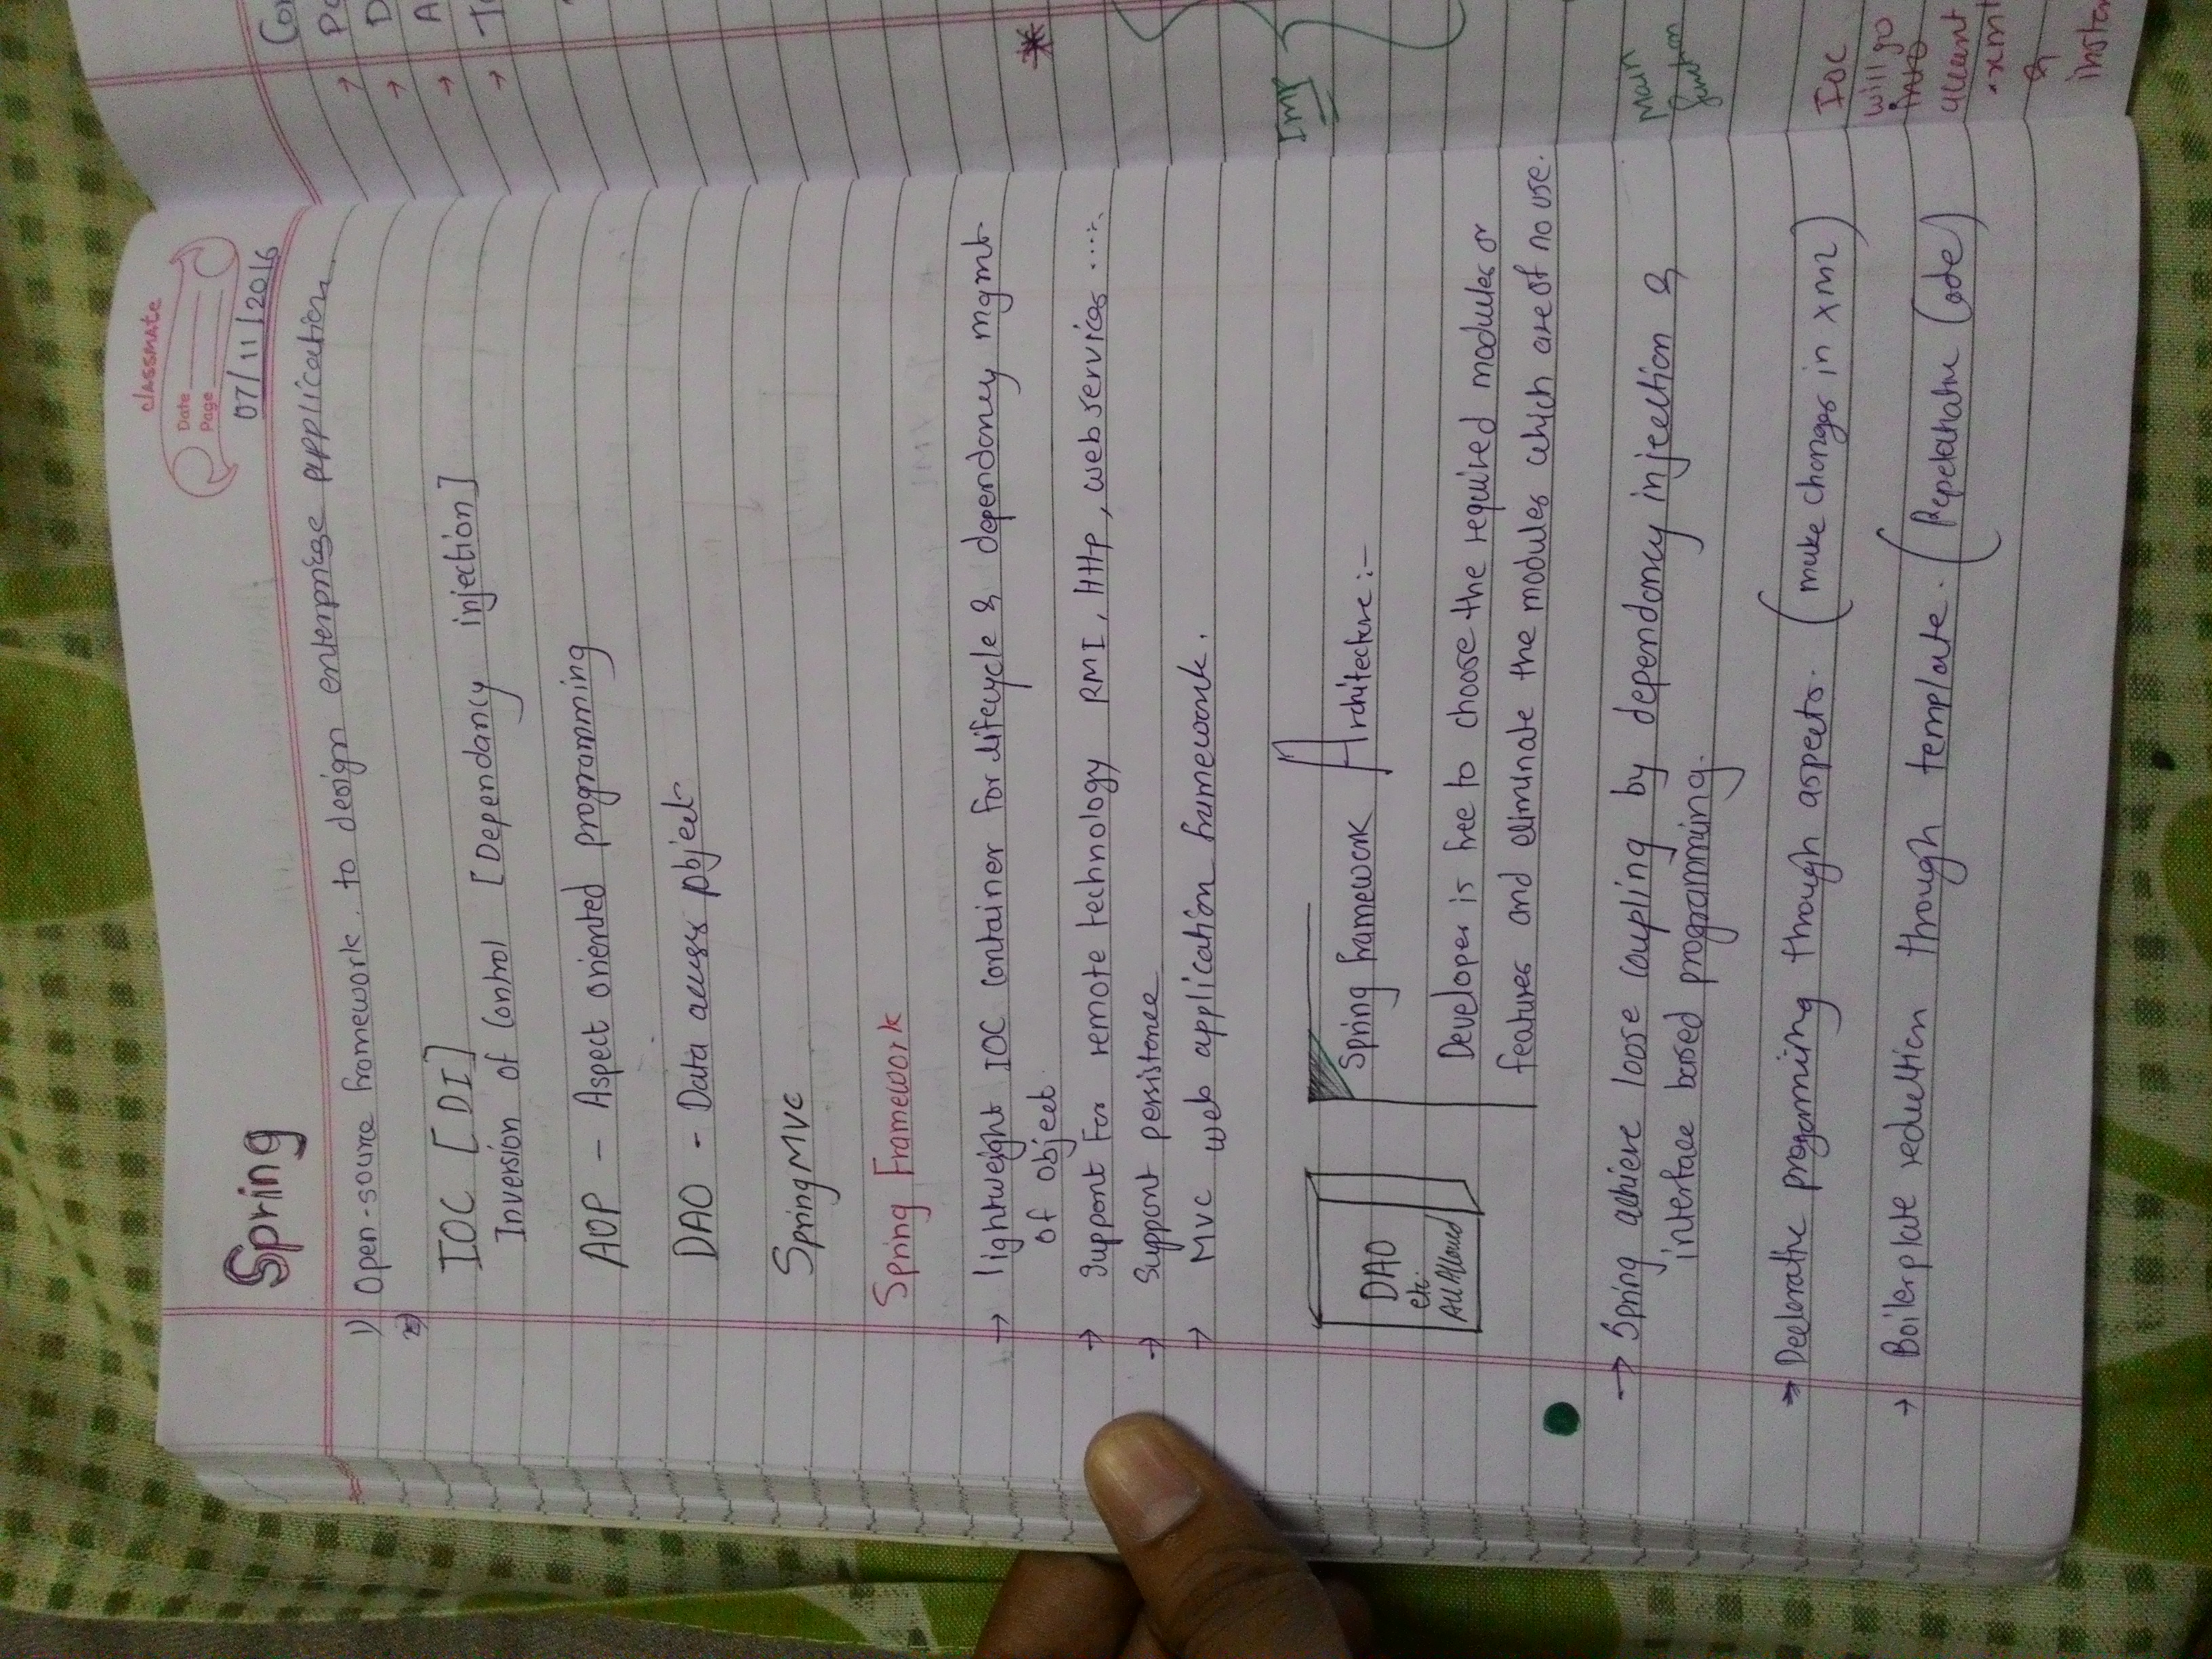 classmate
Date
Page
07/11/2016
Spring
1) Open-source framework. to design enterprise application.
2)
IOC [DI]
Inversion of Control [Dependancy injection]
AOP - Aspect oriented programming
DAO - Data access object
Spring MVC
Spring Framework
→ lightweight IOC container for lifecycle & dependency mgmt
of object
→ Support For remote technology RMI, Http, web services .....
→ Support persistence
→ MVC web application framework.
DAO
etc.
All Allowed
Spring framework Architecture :-
Developer is free to choose the required modules or
features and eliminate the modules which are of no use.
→ Spring achieve loose coupling by dependency injection &
interface based programming.
→ programming through aspects. (make changes in XML)
→ Boilerplate reduction through template. ( Code)
Imp
Main
function
IOC
will go
into
.xml
&